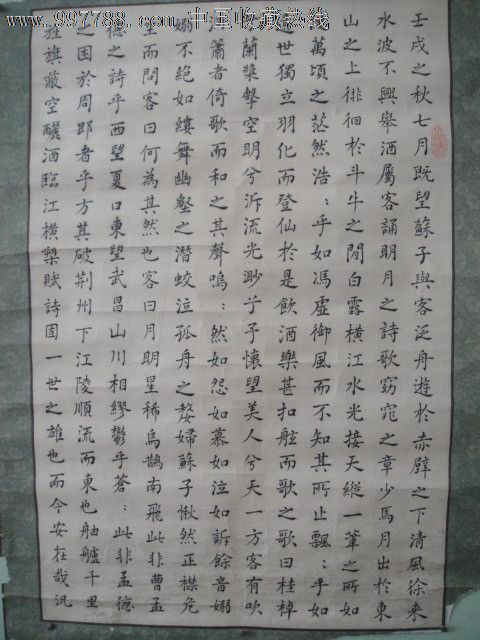 www.997788.com 中国收藏热线
壬戌之秋七月既望蘇子與客泛舟遊於赤壁之下清風徐来
水波不興舉酒屬客誦明月之詩歌窈窕之章少焉月出於東
山之上徘徊於斗牛之閒白露橫江水光接天縱一葦之所如
萬頃之茫然浩:乎如馮虛御風而不知其所止飄:乎如
遺世獨立羽化而登仙於是飲酒樂甚扣舷而歌之歌曰桂棹
兮蘭槳擊空明兮泝流光渺于予懷望美人兮天一方客有吹
洞簫者倚歌而和之其聲嗚:然如怨如慕如泣如訴餘音嫋
嫋不絕如縷舞幽壑之潛蛟泣孤舟之嫠婦蘇子愀然正襟危
坐而問客曰何為其然也客曰月明星稀烏鵲南飛此非曹孟
德之詩乎西望夏口東望武昌山川相繆鬱乎蒼:此非孟德
之困於周郎者乎方其破荊州下江陵順流而東也舳艫千里
旌旗蔽空釃酒臨江橫槊賦詩固一世之雄也而今安在哉況